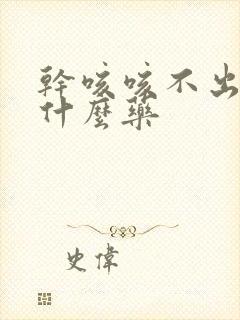 幹咳咳不出
什麼藥
史偉